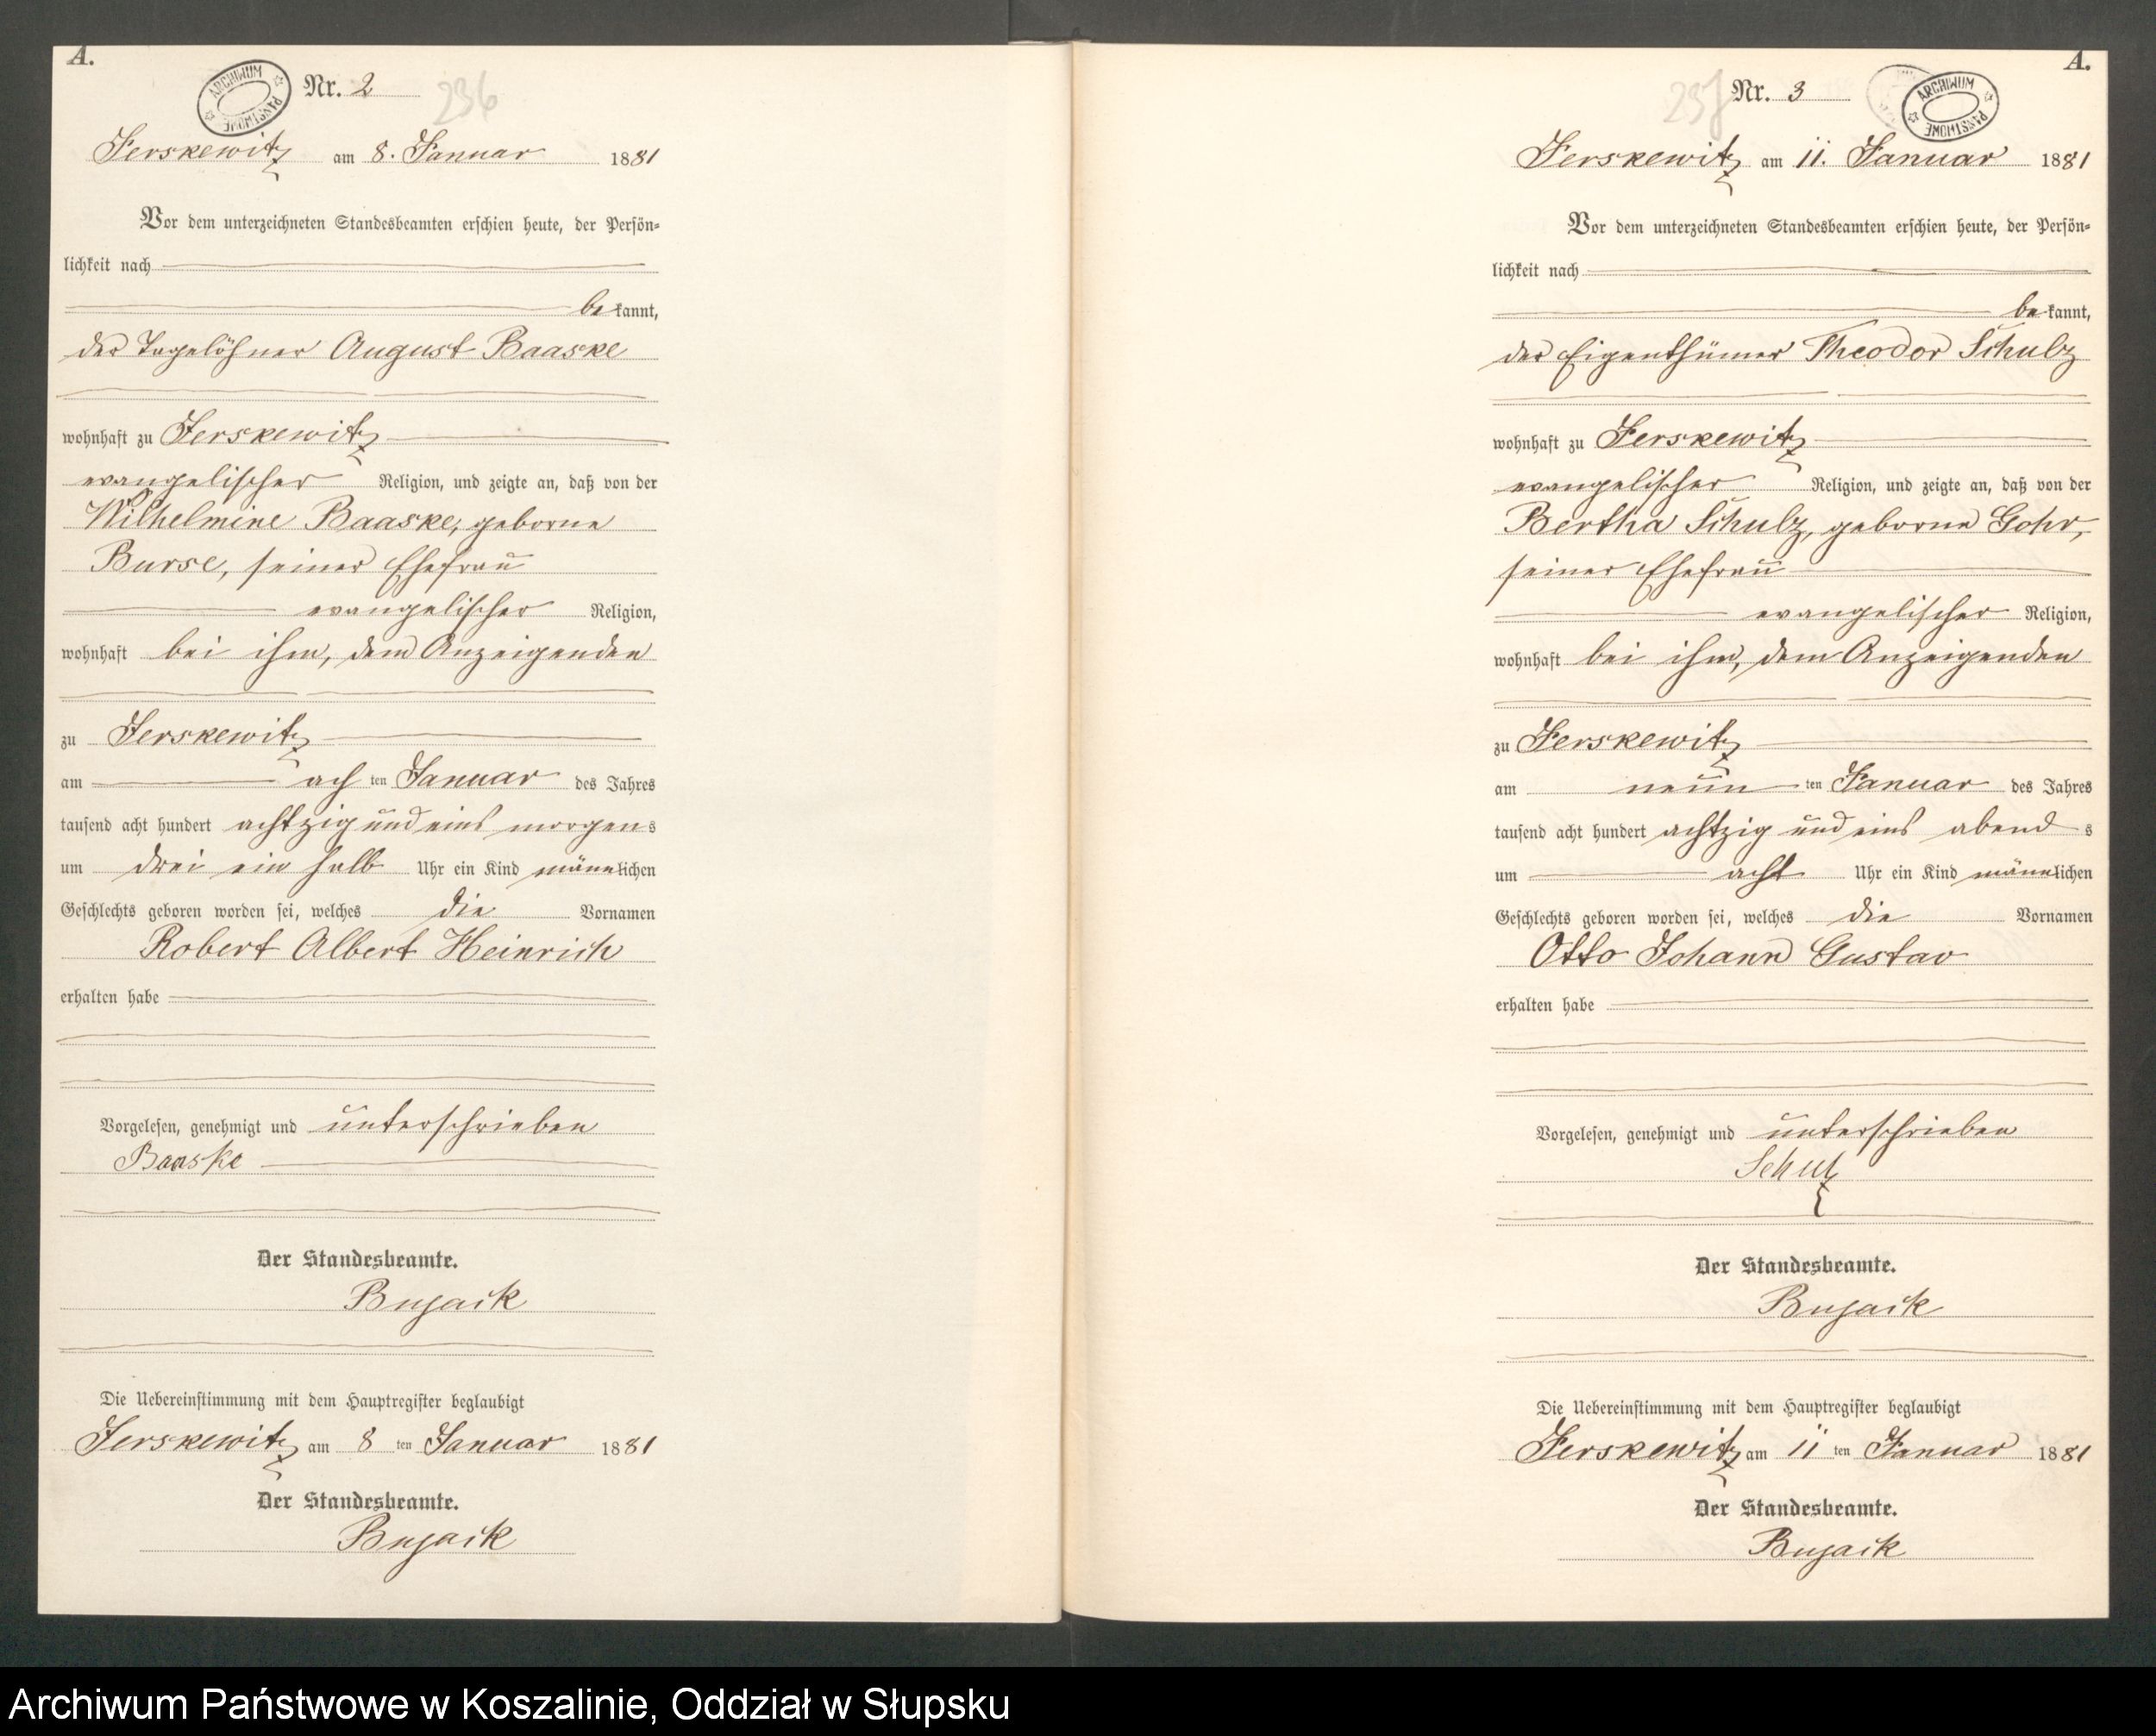 A.
ARCHIWUM PAŃSTWOWE
Nr. 2
236
Jerskewitz am 8. Januar 1881
Vor dem unterzeichneten Standesbeamten erschien heute, der Persön-
lichkeit nach
bekannt,
der Tagelöhner August Baaske
wohnhaft zu Jerskewitz
evangelischer Religion, und zeigte an, daß von der
Wilhelmine Baaske, geborne
Burse, seiner Ehefrau
evangelischer Religion,
wohnhaft bei ihm, dem Anzeigenden
zu Jerskewitz
am achten Januar des Jahres
tausend acht hundert achtzig und eins morgens
um drei ein halb Uhr ein Kind männlichen
Geschlechts geboren worden sei, welches die Vornamen
Robert Albert Heinrich
erhalten habe
Vorgelesen, genehmigt und unterschrieben
Baaske
Der Standesbeamte.
Bujack
Die Uebereinstimmung mit dem Hauptregister beglaubigt
Jerskewitz am 8 ten Januar 1881
Der Standesbeamte.
Bujack
A.
ARCHIWUM PAŃSTWOWE
Nr. 3
237
Jerskewitz am 11. Januar 1881
Vor dem unterzeichneten Standesbeamten erschien heute, der Persön-
lichkeit nach
bekannt,
der Eigenthümer Theodor Schulz
wohnhaft zu Jerskewitz
evangelischer Religion, und zeigte an, daß von der
Bertha Schulz, geborne Gohr,
seiner Ehefrau
evangelischer Religion,
wohnhaft bei ihm, dem Anzeigenden
zu Jerskewitz
am neun ten Januar des Jahres
tausend acht hundert achtzig und eins abends
um acht Uhr ein Kind männlichen
Geschlechts geboren worden sei, welches die Vornamen
Otto Johann Gustav
erhalten habe
Vorgelesen, genehmigt und unterschrieben
Schulz
Der Standesbeamte.
Bujack
Die Uebereinstimmung mit dem Hauptregister beglaubigt
Jerskewitz am 11 ten Januar 1881
Der Standesbeamte.
Bujack
Archiwum Państwowe w Koszalinie, Oddział w Słupsku